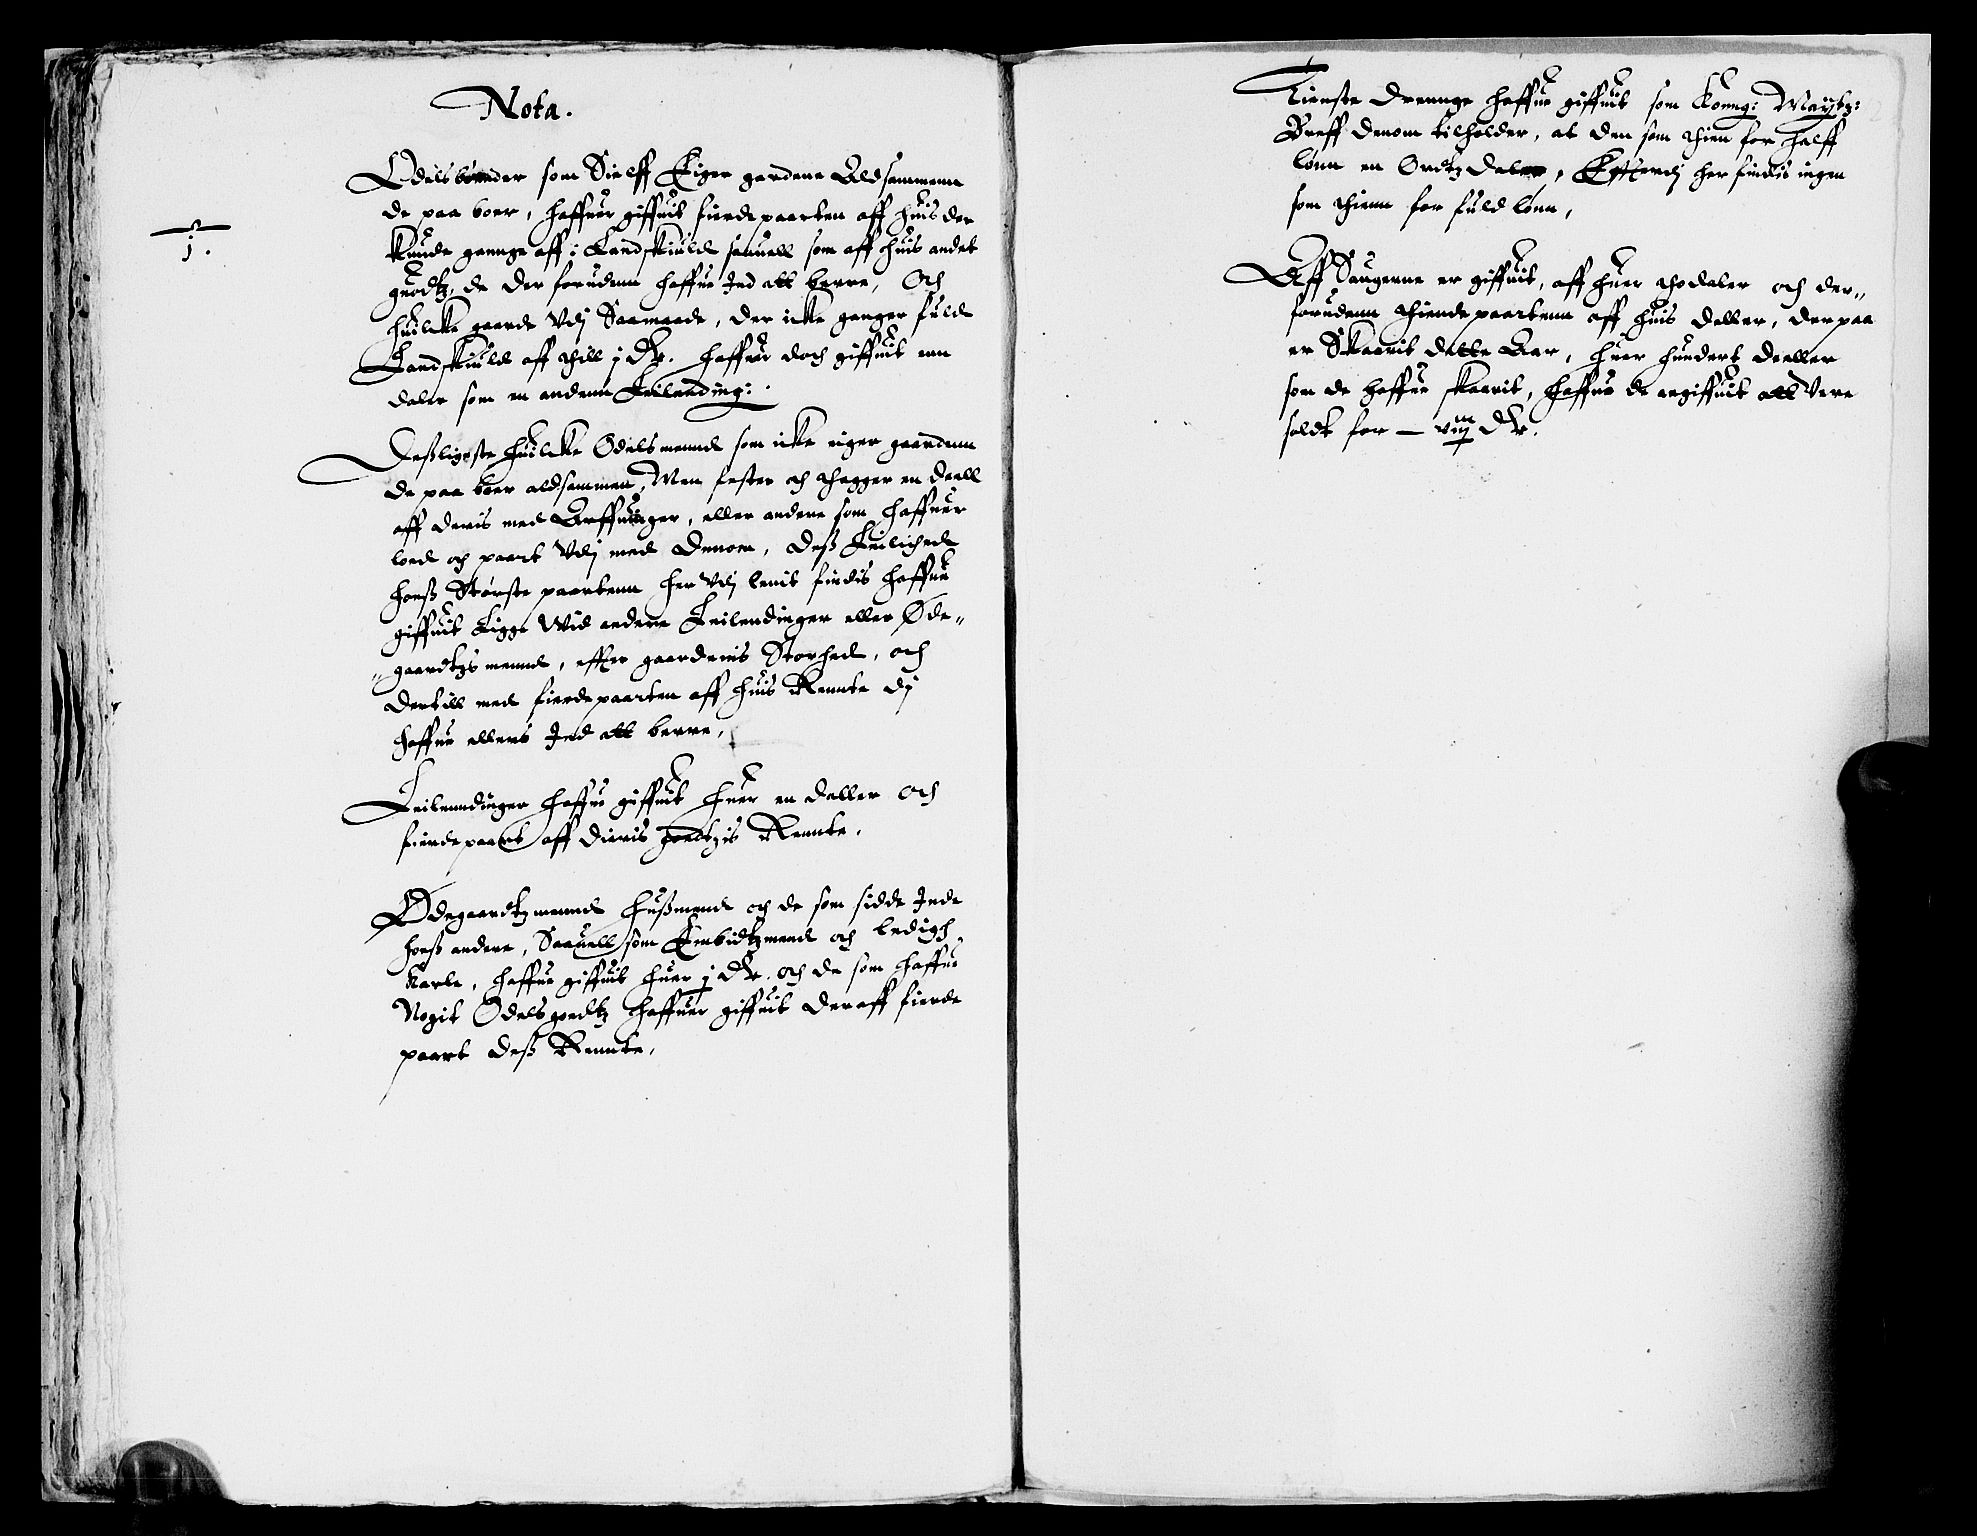 Nota.
Odelsbønder som Sielff Eiger gardene Aldsammenn
de paa boer, haffuer giffuit fierde paarten aff huis der
1.
kunde gannge aff i Landskiuld sauell som aff huis andet
guodtz, de der forudenn haffue Ind att berre, Och
huilcke gaarde Vdj Saamaade, der icke ganger fuld
Landskiuld aff thill j dr. haffuer doch giffuit enn
daler som en andenn Leilending:
Desligeste huilcke Odelsmennd som icke eiger gaardenn
de paa boer aldsammen, Men fester och thagger en deell
aff deris med Arffuinger, eller andere som haffuer
lod och paart Vdj med dennom, dess Leilighed
hoess Største paartenn her Vdj lenit findis haffue
giffuit Ligge Wid andere Leilendinger eller Øde„
„gaardtzs mennd, effter gaardenis Storhed, och
dertill med fierdepaarten aff huis Rennte dj
haffue ellers Ind att berre,
Leilenndinger haffue giffuit huer en daller och
fierdepaart aff dieris goedtzis Rennte,
Ødegaardtzmennd Hussmend och de som sidde Inde
hoess andere, Saauell som Embidtzmend och ledigh
Karle, haffue giffuit huer j dr. och de som haffue
Nogit Odelsgoedtz haffuer giffuit deraff fierde
paart dess Rennte,
Tienste drennge haffue giffuit som Konng: Maytz:
Breff denom tilholder, at den som thien for halff
lønn en Ordtz daler, Effterdj her findis ingen
som thienn for fuld lønn,
Aff Saugerne er giffuit, aff huer tho daler och der„
forudenn thiende paartenn aff huis deller, der paa
er Skaarit dette Aar, huer hundert deeller
som de haffue skaarit, haffue de angiffuit att Vere
soldt for — viij dr.